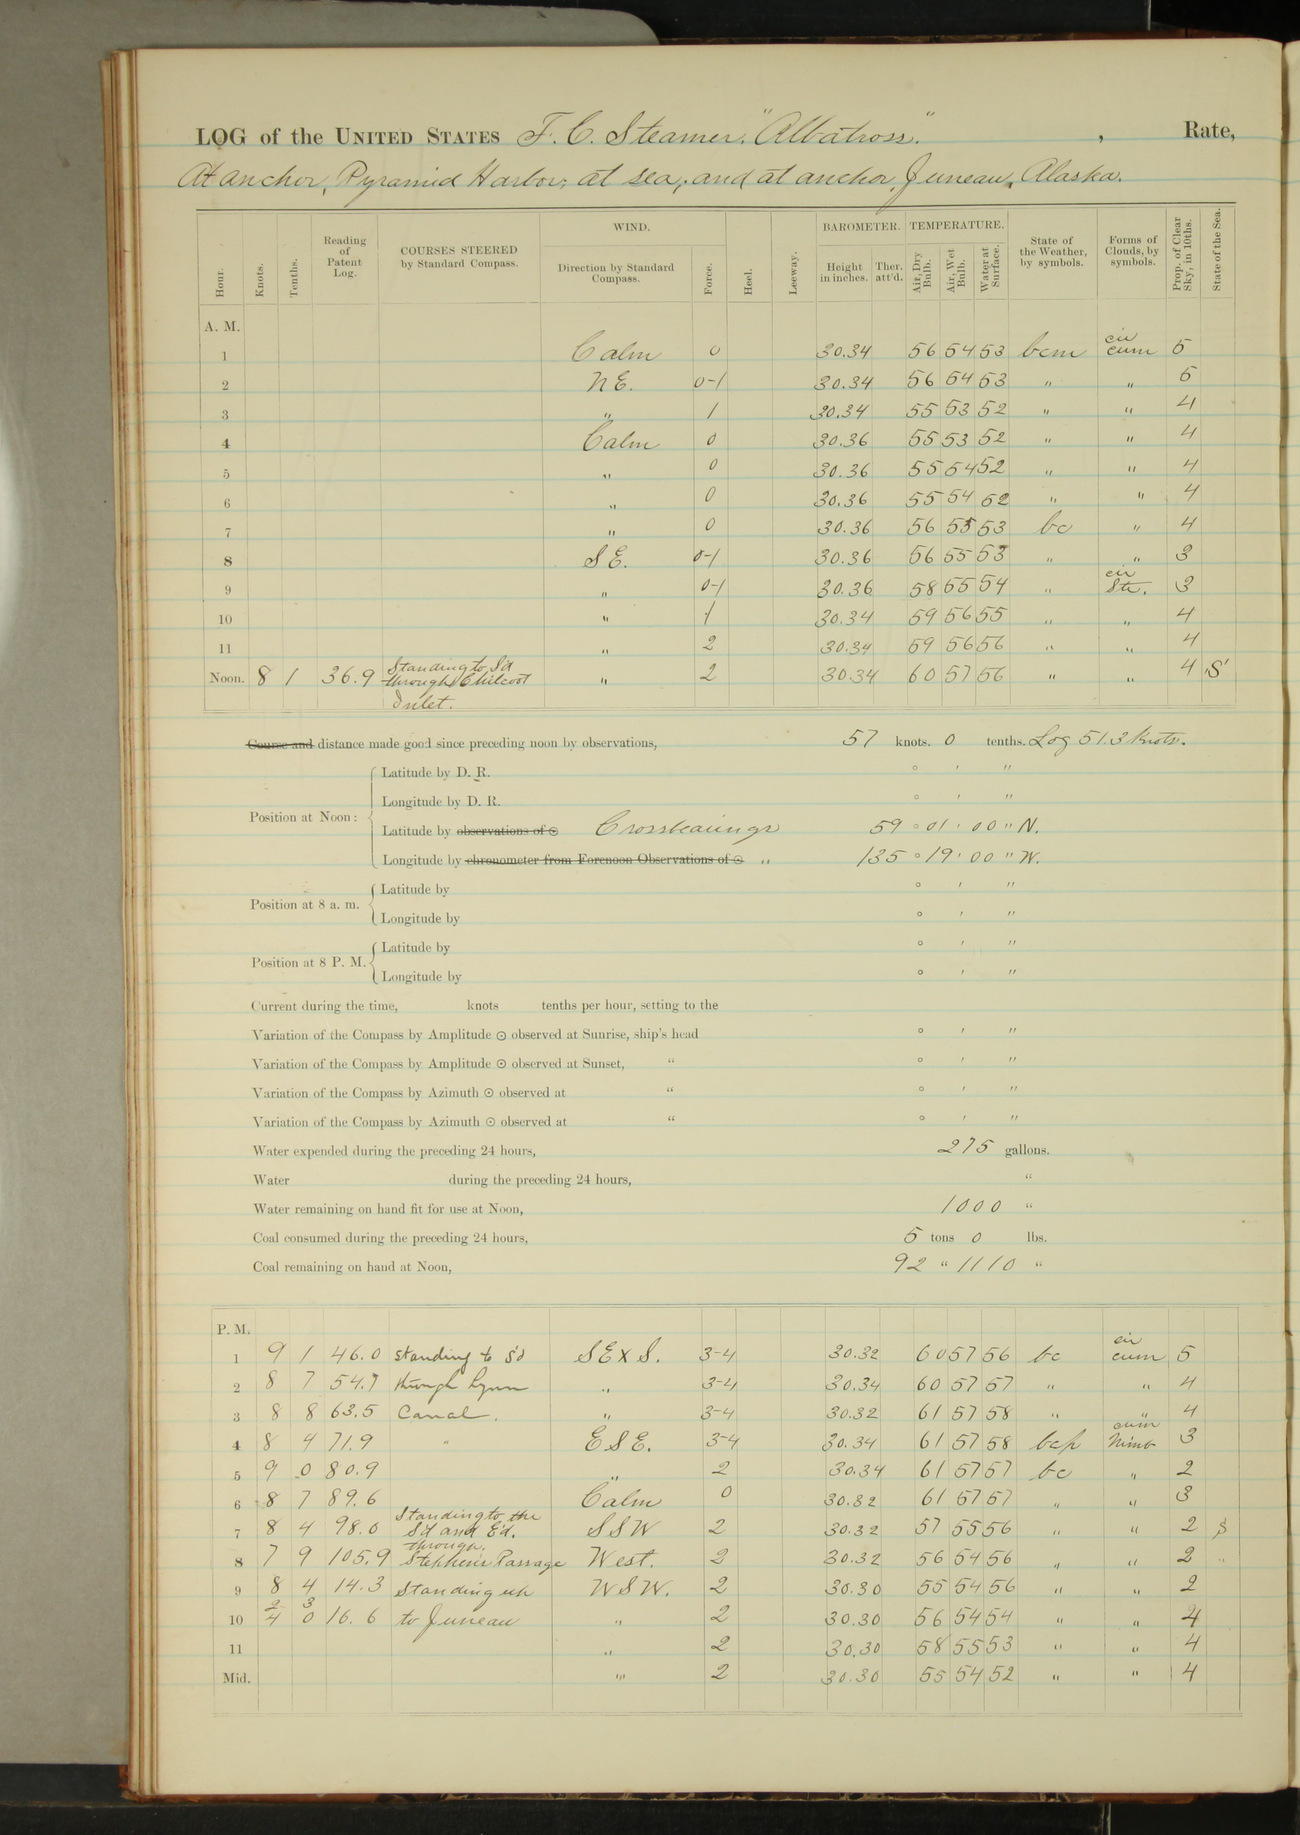 LOG of the UNITED STATES F. C. Steamer "Albatross" , Rate,
At anchor, Pyramid Harbor; at sea, and at anchor, Juneau, Alaska.
Hour. Knots. Tenths. Reading of Patent Log. COURSES STEERED by Standard Compass. WIND. Direction by Standard Compass. Force. Heel. Leeway. BAROMETER. Height in inches. Ther. att'd. TEMPERATURE. Air, Dry Bulb. Air, Wet Bulb. Water at Surface. State of the Weather, by symbols. Forms of Clouds, by symbols. Prop. of Clear Sky, in 10ths. State of the Sea.
A. M.
1 Calm 0 30.34 56 54 53 bcm cir cum 5
2 NE. 0-1 30.34 56 54 53 " " 5
3 " 1 30.34 55 53 52 " " 4
4 Calm 0 30.36 55 53 52 " " 4
5 " 0 30.36 55 54 52 " " 4
6 " 0 30.36 55 54 52 " " 4
7 " 0 30.36 56 55 53 bc " 4
8 SE. 0-1 30.36 56 55 53 " " 3
9 " 0-1 30.36 58 55 54 " cir Str. 3
10 " 1 30.34 59 56 55 " " 4
11 " 2 30.34 59 56 56 " " 4
Noon. 8 1 36.9 Standing to S'd through Chilcoot Inlet. " 2 30.34 60 57 56 " " 4 'S'
Course and distance made good since preceding noon by observations, 57 knots. 0 tenths. Log 51.3 Knots.
Latitude by D. R. ° ' "
Longitude by D. R. ° ' "
Position at Noon:
Latitude by observations of ☉ Crossbearings 59 ° 01 ' 00 " N.
Longitude by chronometer from Forenoon Observations of ☉ " 135 ° 19 ' 00 " W.
Position at 8 a. m.
Latitude by ° ' "
Longitude by ° ' "
Position at 8 P. M.
Latitude by ° ' "
Longitude by ° ' "
Current during the time, knots tenths per hour, setting to the
Variation of the Compass by Amplitude ☉ observed at Sunrise, ship's head ° ' "
Variation of the Compass by Amplitude ☉ observed at Sunset, " ° ' "
Variation of the Compass by Azimuth ☉ observed at " ° ' "
Variation of the Compass by Azimuth ☉ observed at " ° ' "
Water expended during the preceding 24 hours, 275 gallons.
Water during the preceding 24 hours, "
Water remaining on hand fit for use at Noon, 1000 "
Coal consumed during the preceding 24 hours, 5 tons 0 lbs.
Coal remaining on hand at Noon, 92 " 1110 "
P. M.
1 9 1 46.0 standing to S'd SExS. 3-4 30.32 60 57 56 bc cir cum 5
2 8 7 54.7 through Lynn " 3-4 30.34 60 57 57 " " 4
3 8 8 63.5 Canal. " 3-4 30.32 61 57 58 " " 4
4 8 4 71.9 " ESE. 3-4 30.34 61 57 58 bcp cum Nimb 3
5 9 0 80.9 " 2 30.34 61 57 57 bc " 2
6 8 7 89.6 Calm 0 30.32 61 57 57 " " 3
7 8 4 98.0 Standing to the S'd and E'd. SSW 2 30.32 57 55 56 " " 2 S
8 7 9 105.9 through Stephens Passage West. 2 30.32 56 54 56 " " 2 "
9 8 4 14.3 Standing up WSW. 2 30.30 55 54 56 " " 2
10 2/4 3/0 16.6 to Juneau " 2 30.30 56 54 54 " " 4
11 " 2 30.30 58 55 53 " " 4
Mid. " 2 30.30 55 54 52 " " 4